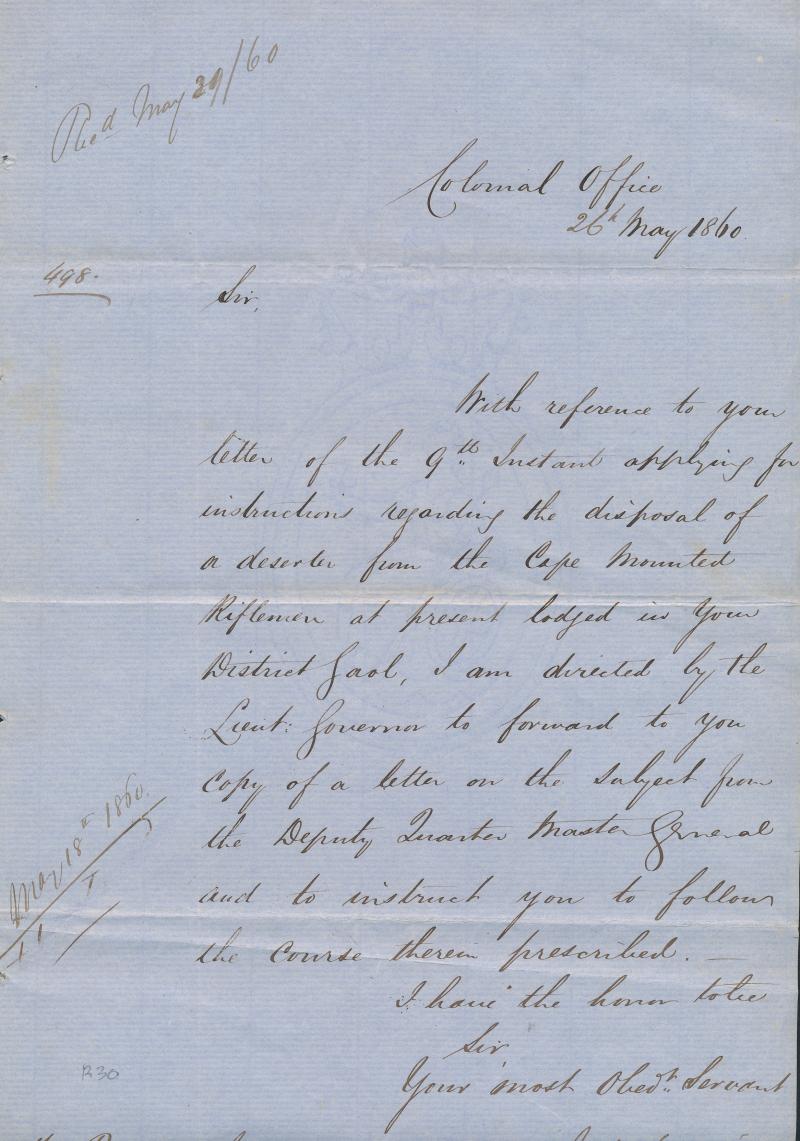 Recd May 29/60
Colonial Office
26th May 1860.
498.
Sir,
With reference to your
letter of the 9th Instant applying for
instructions regarding the disposal of
a deserter from the Cape Mounted
Riflemen at present lodged in Your
District Gaol, I am directed by the
Lieut: Governor to forward to you
copy of a letter on the subject from
the Deputy Quarter Master General
and to instruct you to follow
the course therein prescribed. —
I have the honor to be
Sir
Your most Obedt. Servant
May 18th 1860.
R30